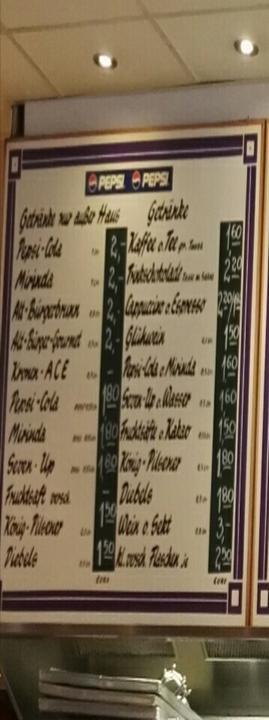 PEPSI PEPSI
Getränke nur außer Haus
Pepsi-Cola 2,-
Mirinda 2,-
Alt-Bürgerbrunn 2,-
Alt-Bürger-Gourmet 2,-
Kronen-ACE -
Pepsi-Cola 1,80
Mirinda 1,80
Seven-Up 1,80
Fruchtsaft versch. -
König-Pilsener 1,50
Diebels 1,50
EURO
Getränke
Kaffee o. Tee gr. Tasse 1,60
Trinkschokolade 2,20
Cappuccino o. Espresso
Glühwein 1,50
Pepsi-Cola o. Mirinda 1,60
Seven-Up o. Wasser 1,60
Fruchtsäfte o. Kakao 1,50
König-Pilsener 1,80
Diebels 1,80
Wein o. Sekt 3,-
kl. versch. Flaschen je 2,50
EURO